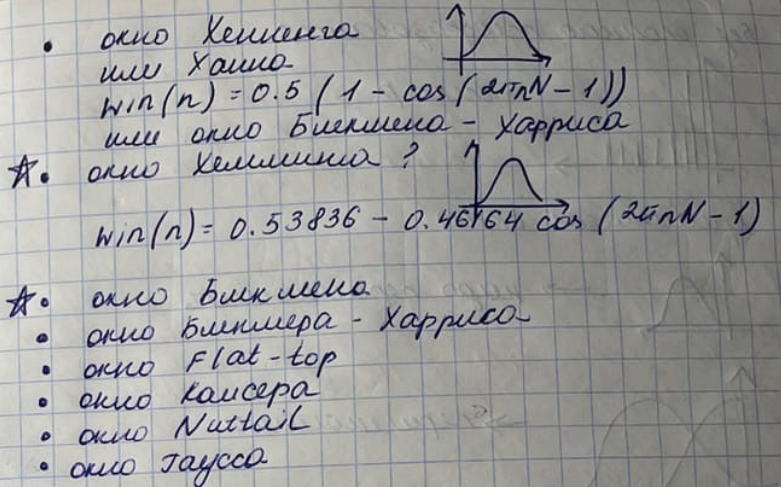 • окно Хеннинга
или Ханна
win(n) = 0.5 (1 - cos(2πnN - 1))
или окно Блекмена - Харриса
☆• окно Хемминга ?
win(n) = 0.53836 - 0.46164 cos (2πnN - 1)
☆• окно Блкмена
• окно Блекмера - Харриса
• окно Flat-top
• окно Кайсера
• окно Nuttall
• окно Гаусса